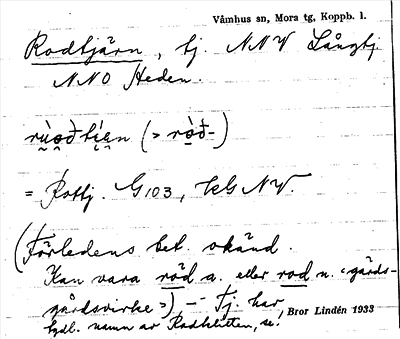 Våmhus sn, Mora tg, Koppb. l.
Rodtjärn, tj. NNV Långtj.
NNO Heden.
(> ròð-)
= Rottj. G103, kG NV.
(Förledens bet. okänd.
Kan vara röd a. eller rod n. "gärds-
gårdsvirke") — Tj. har
namn av Rodklitten, se.
Bror Lindén 1933